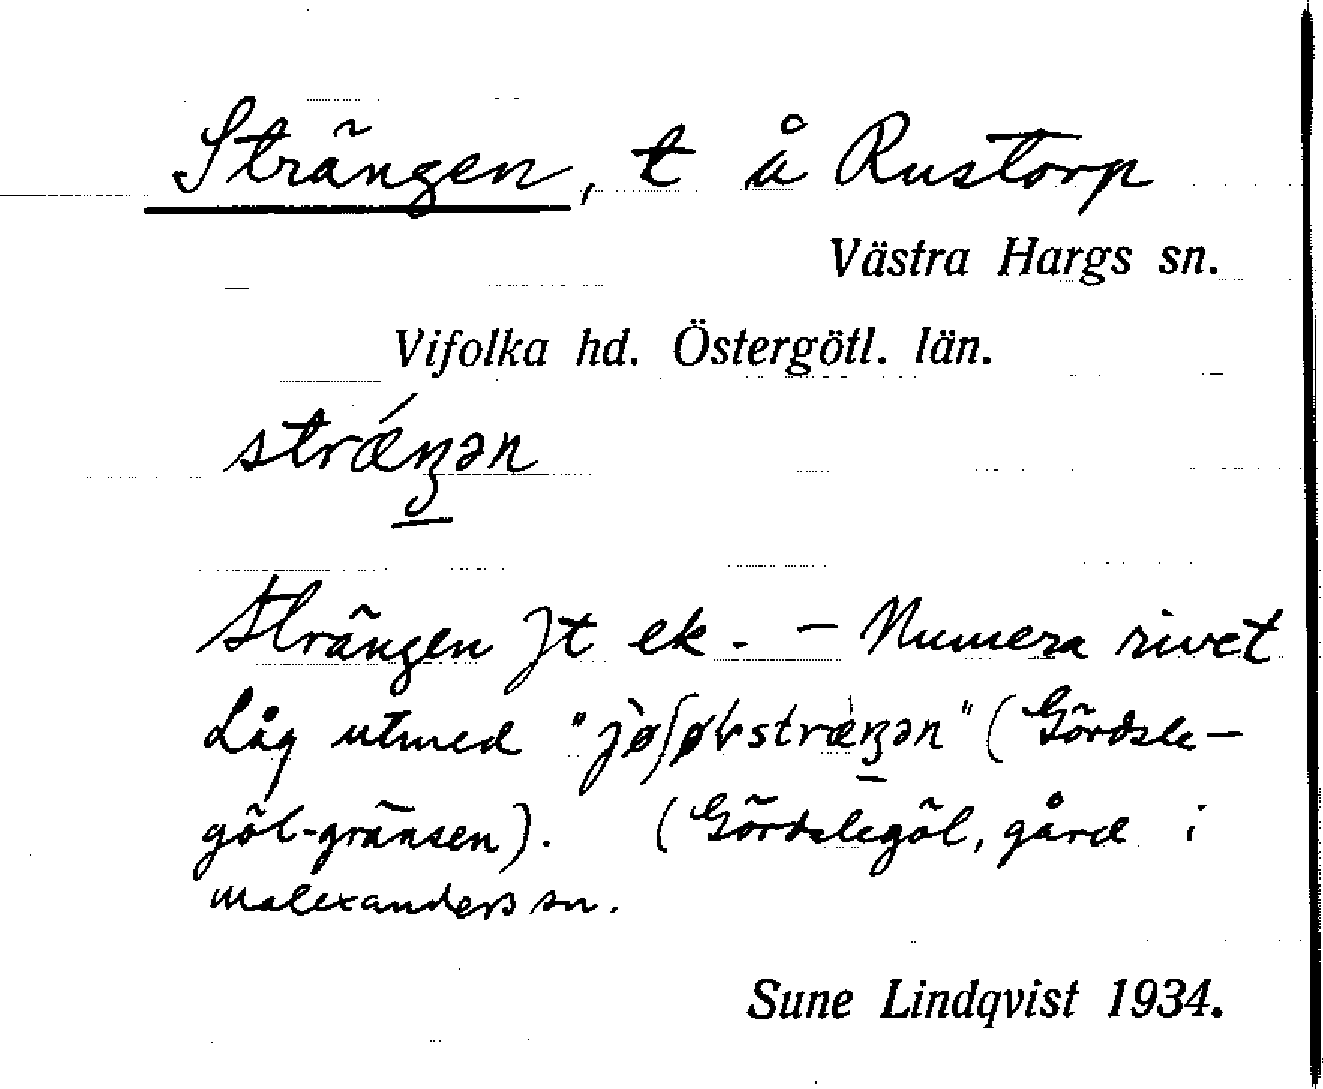 Strängen, t å Rustorp
Västra Hargs sn.
Vifolka hd. Östergötl. län.
strǽŋən
Strängen }t ek. – Numera rivet
Låg utmed "jøʃøḷstræŋən" (Gördsle-
göl-gränsen). (Gördslegöl, gård i
Malexanders sn.
Sune Lindqvist 1934.